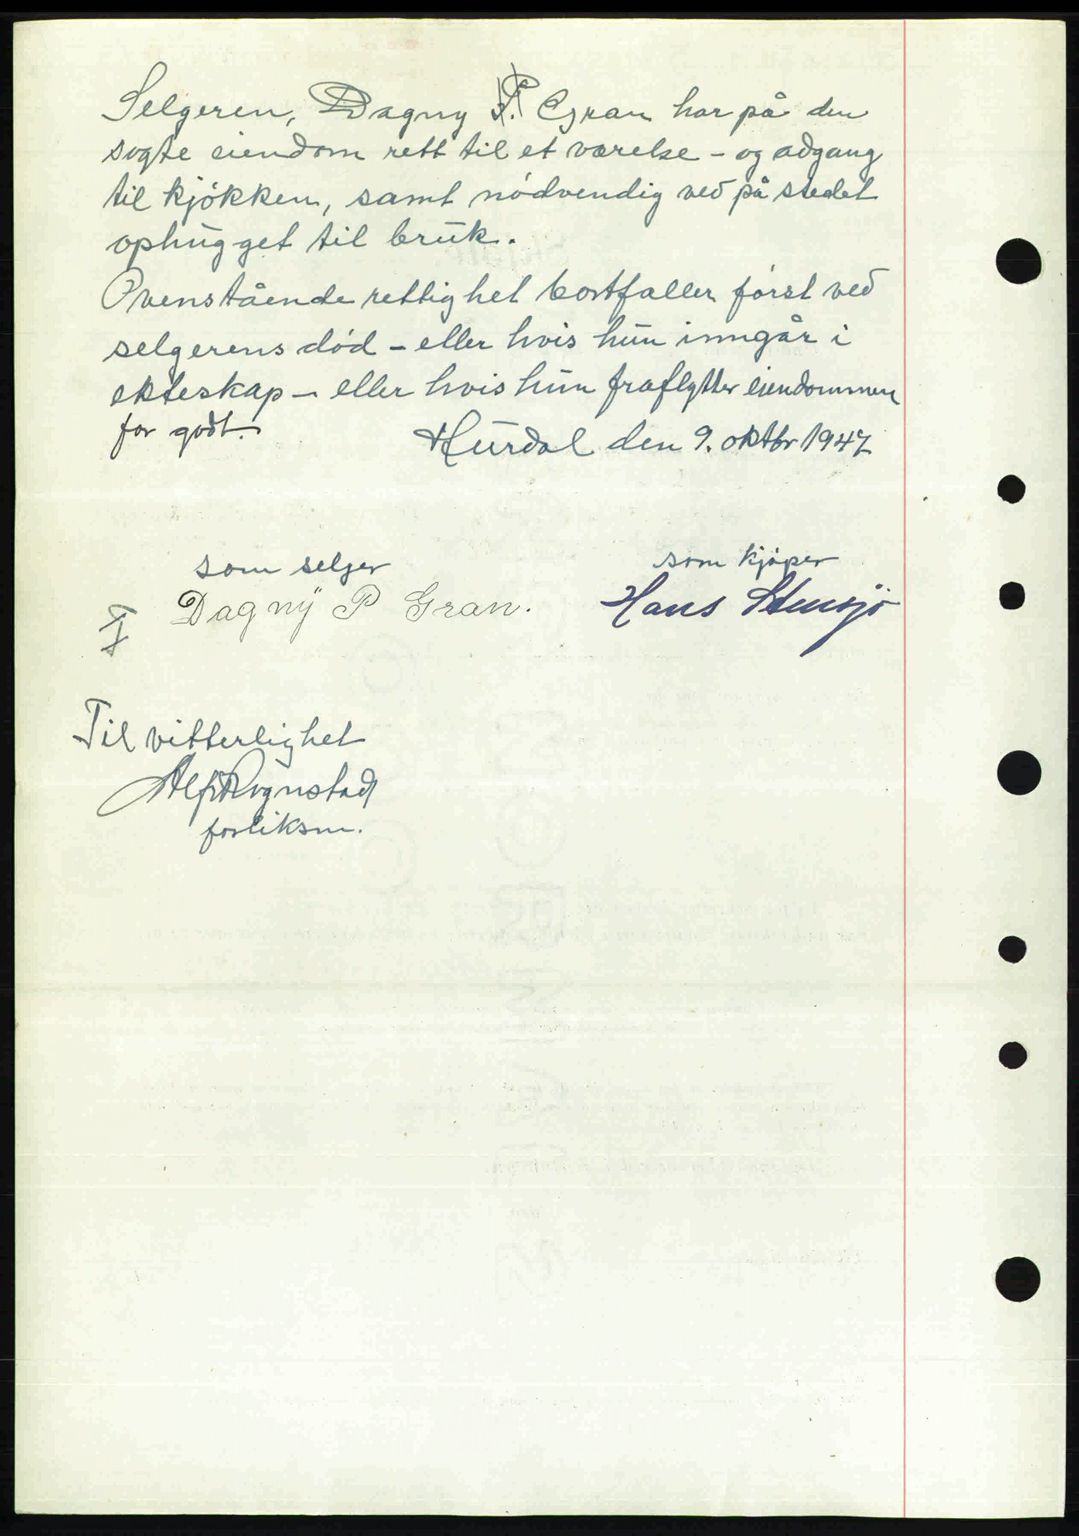 Selgeren, Dagny P. Gran har på den
sogte eiendom rett til et værelse - og adgang
til kjøkken, samt nødvendig ved på stedet
ophugget til bruk.
Ovenstående rettighet bortfaller først ved
selgerens död - eller hvis hun inngår i
ekteskap - eller hvis hun fraflytter eiendommen
for godt.
Hurdal den 9. oktbr 1947
som selger
som kjøper
Dagny P Gran.
Hans Stensjø
Til vitterlighet
Alf Rognstad
forliksm.